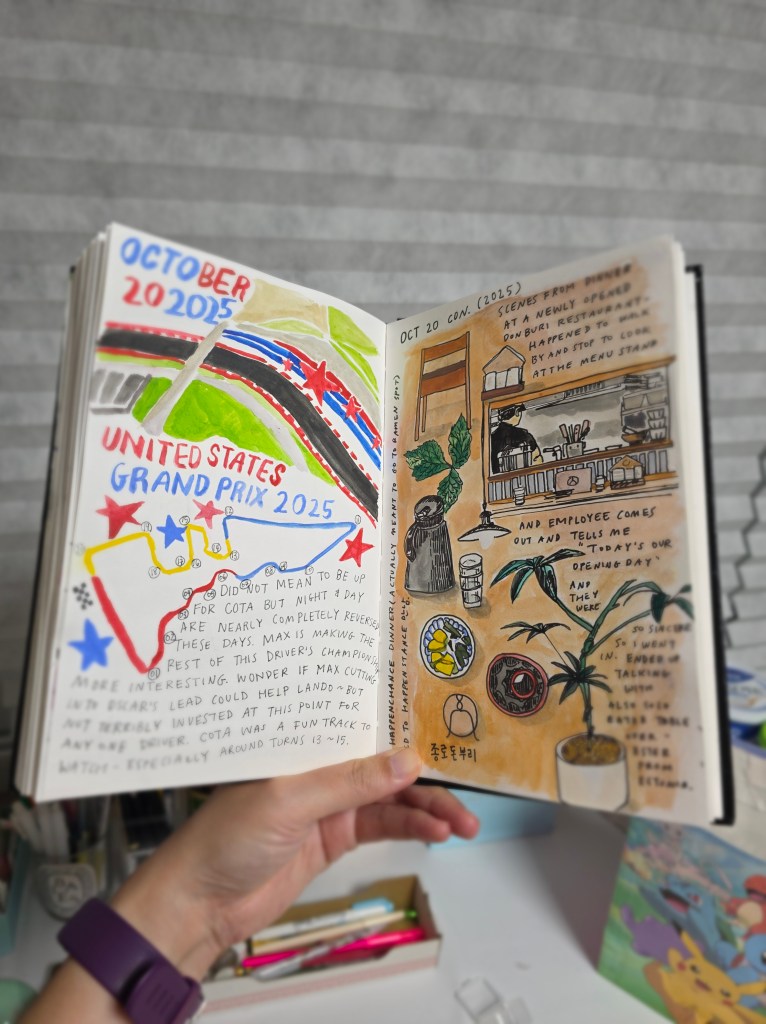 OCTOBER
20 2025
UNITED STATES
GRAND PRIX 2025
DID NOT MEAN TO BE UP
FOR COTA BUT NIGHT & DAY
ARE NEARLY COMPLETELY REVERSED
THESE DAYS. MAX IS MAKING THE
REST OF THIS DRIVER'S CHAMPIONSHIP
MORE INTERESTING. WONDER IF MAX CUTTING
INTO OSCAR'S LEAD COULD HELP LANDO - BUT
NOT TERRIBLY INVESTED AT THIS POINT FOR
ANY ONE DRIVER. COTA WAS A FUN TRACK TO
WATCH - ESPECIALLY AROUND TURNS 13 ~ 15.
OCT 20 CON. (2025)
SCENES FROM DINNER
AT A NEWLY OPENED
DONBURI RESTAURANT -
HAPPENED TO WALK
BY AND STOP TO LOOK
AT THE MENU STAND
AND EMPLOYEE COMES
OUT AND TELLS ME
"TODAY'S OUR
OPENING DAY"
AND
THEY
WERE
SO SINCERE
SO I WENT
IN. ENDED UP
TALKING
WITH
ALSO SOLO
TABLE
FROM
ESTONIA.
HAPPENCHANCE DINNER (ACTUALLY MEANT TO GO TO RAMEN SPOT)
TO HAPPENSTANCE
종로돈부리